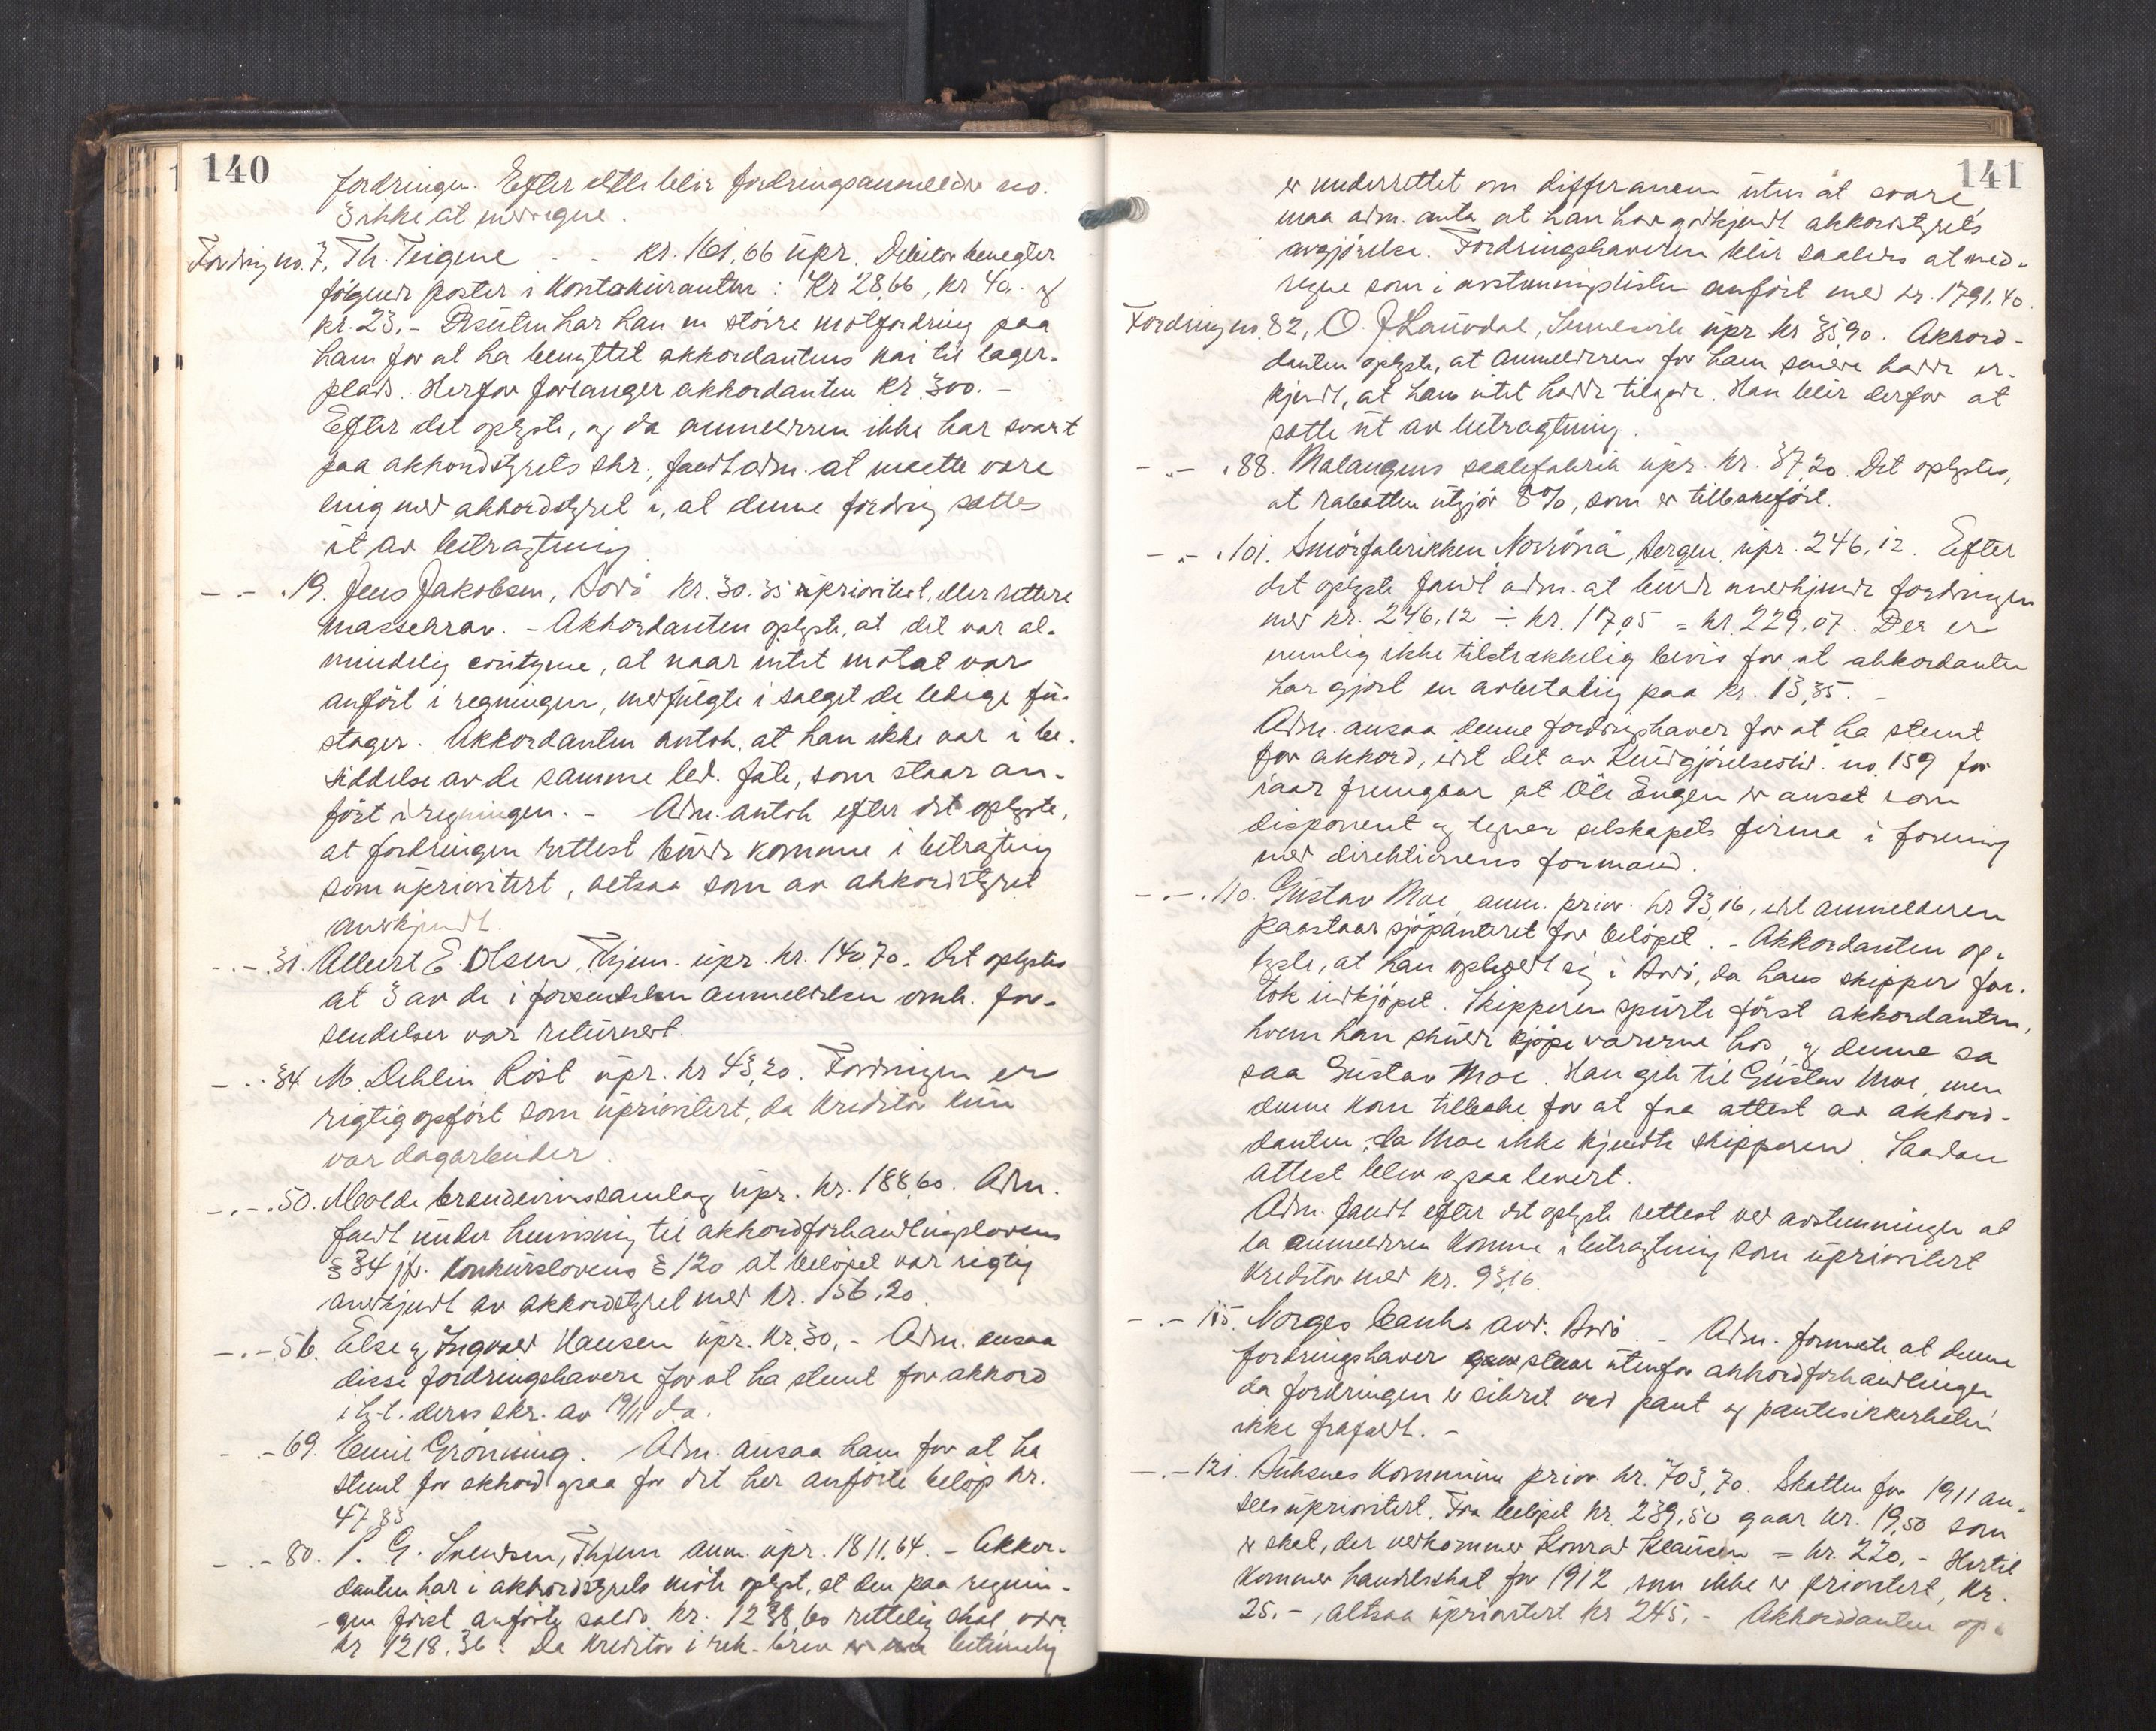 140
fordringen. Efter dette blir fordringsanmelder no.
3 ikke at medregne.
Fordring no. 7, Th. Teigene - - kr. 161,66 upr. Debitor benegter
følgende poster i Kontokuranten: Kr 28,66, kr 40.- og
kr. 23.- Desuten har han en större motfordring paa
ham for at ha benyttet akkordantens kai til lager-
plads. Herfor forlanger akkordanten kr. 300.-
Efter det oplyste, og da anmelderen ikke har svart
paa akkordstyrets skr., fandt adm. at maatte være
enig med akkordstyret i, at denne fordring sættes
ut av betragtning.
- . - . 19. Jens Jakobsen, Bodö kr. 30.35 uprioritert, eller rettere
massekrav. - Akkordanten oplyste, at det var al-
mindelig coutyme, at naar intet motat var
anfört i regningen, medfulgte i salget de ledige fu-
stager. Akkordanten antok, at han ikke var i be-
siddelse av de samme led. fate, som staar an-
fört i regningen. - Adm. antok efter det oplyste,
at fordringen rettest burde komme i betragtning
som uprioritert, altsaa som av akkordstyret
anerkjendt.
- . - . 31. Albert E. Olsen, Thjem. upr. kr. 140,70. Det oplystes
at 3 av de i anmeldelsen omh. for-
sendelser var returnert.
- . - . 34 M. Dehlin, Röst upr. kr 43,20. Fordringen er
rigtig opfört som uprioritert, da kreditor kun
var dagarbeider.
- . - . 50. Molde brændevinssamlag upr. kr. 188,60. Adm.
fandt under henvisning til akkordforhandlingslovens
§ 34 jfr. Konkurslovens § 120 at belöpet var rigtig
anerkjendt av akkordstyret med kr. 156,20.
- . - . 56. Else og Ingvald Hansen upr. kr. 30.- Adm. ansaa
disse fordringshavere for at ha stemt for akkord
i h.t. deres skr. av 19/11 d.a.
- . - 69. Emil Grönning. Adm. ansaa ham for at ha
stemt for akkord ogsaa for det her anförte belöp kr.
47,83
- . - 80. P. G. Svendsen, Thjem anm. upr. 1811,64. - Akkor-
danten har i akkordstyrets möte oplyst, at den paa regnin-
gen först anförte saldo kr. 1238,60 rettelig skal være
kr 1218.36. Da kreditor i rek. brev betimelig
141
er underrettet om differansen uten at svare,
maa adm. anta at han har godkjendt akkordstyrets
avgjörelse. Fordringshaveren blir saaledes at med-
regne som i avstemningslisten anfört med kr. 1791,40.
Fordring no. 82, O. J. Laurdal, upr kr 35,90. Akkord-
danten oplyste, at anmelderen for ham senere hadde er-
kjendt, at han intet hadde tilgode. Han blir derfor at
sætte ut av betragtning.
- . - . 88. Malangens saalefabrik upr. kr. 37,20. Det oplystes,
at rabatten utgjör 8%, som er tilbakefört.
- . - . 101. Smörfabrikken Norröna, Bergen, upr. 246,12. Efter
det oplyste fandt adm. at burde anerkjende fordringen
med kr. 246,12 ÷ kr. 17,05 = kr 229.07. Der er
nemlig ikke tilstrækkelig bevis for at akkordanten
har gjort en avbetaling paa kr. 13,35. -
Adm. ansaa denne fordringshaver for at ha stemt
for akkord, idet det av Kundgjörelsestid. no. 159 for
iaar fremgaar at Ole Engen er ansat som
disponent og tegner selskapets firma i forening
med direktionens formand.
- . - . 110. Gustav Moe, anm. prior. kr 93,16, idet anmelderen
paastaar sjöpanteret for belöpet. - Akkordanten op-
lyste, at han opholdt sig i Bodö, da hans skipper for-
tok indkjöpet. Skipperen spurte först akkordanten,
hvem han skulde kjöpe varerne hos, og denne sa
saa Gustav Moe. Han gik til Gustav Moe, men
denne kom tilbake for at faa attest av akkord-
danten, da Moe ikke kjendte skipperen. Saadan
attest blev ogsaa levert.
Adm. fandt efter det oplyste rettest ved avstemningen at
la anmelderen komme i betragtning som uprioritert
kreditor med kr. 93,16.
- . - 115. Norges bank avd. Bodö. - Adm. formente at denne
fordringshaver staar utenfor akkordforhandlingen,
da fordringen er sikret ved pant og pantesikkerheten
ikke frafaldt. -
- . - 121. Buksnes Kommune prior. kr. 703,70. Skatten for 1911 an-
sees uprioritert. Fra belöpet kr. 239,50 gaar kr. 19,50 som
er skat, der vedkommer Konrad Klausen = kr. 220.- Hertil
kommer handelsskat for 1912, som ikke er prioritert, kr.
25.-, altsaa uprioritert kr 245.- Akkorddanten op-